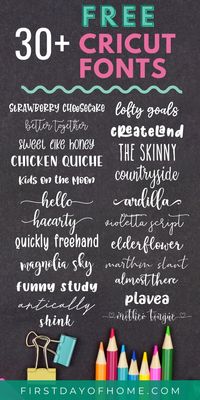 30+ FREE
CRICUT
FONTS
strawberry cheesecake
better together
sweet like honey
CHICKEN QUICHE
Kids on the Moon
hello
hacarty
quickly freehand
magnolia sky
funny study
antically
shink
lofty goals
createland
THE SKINNY
countryside
ardilla
violetta script
elderflower
marthin slant
almost there
plavea
mother tongue
FIRSTDAYOFHOME.COM